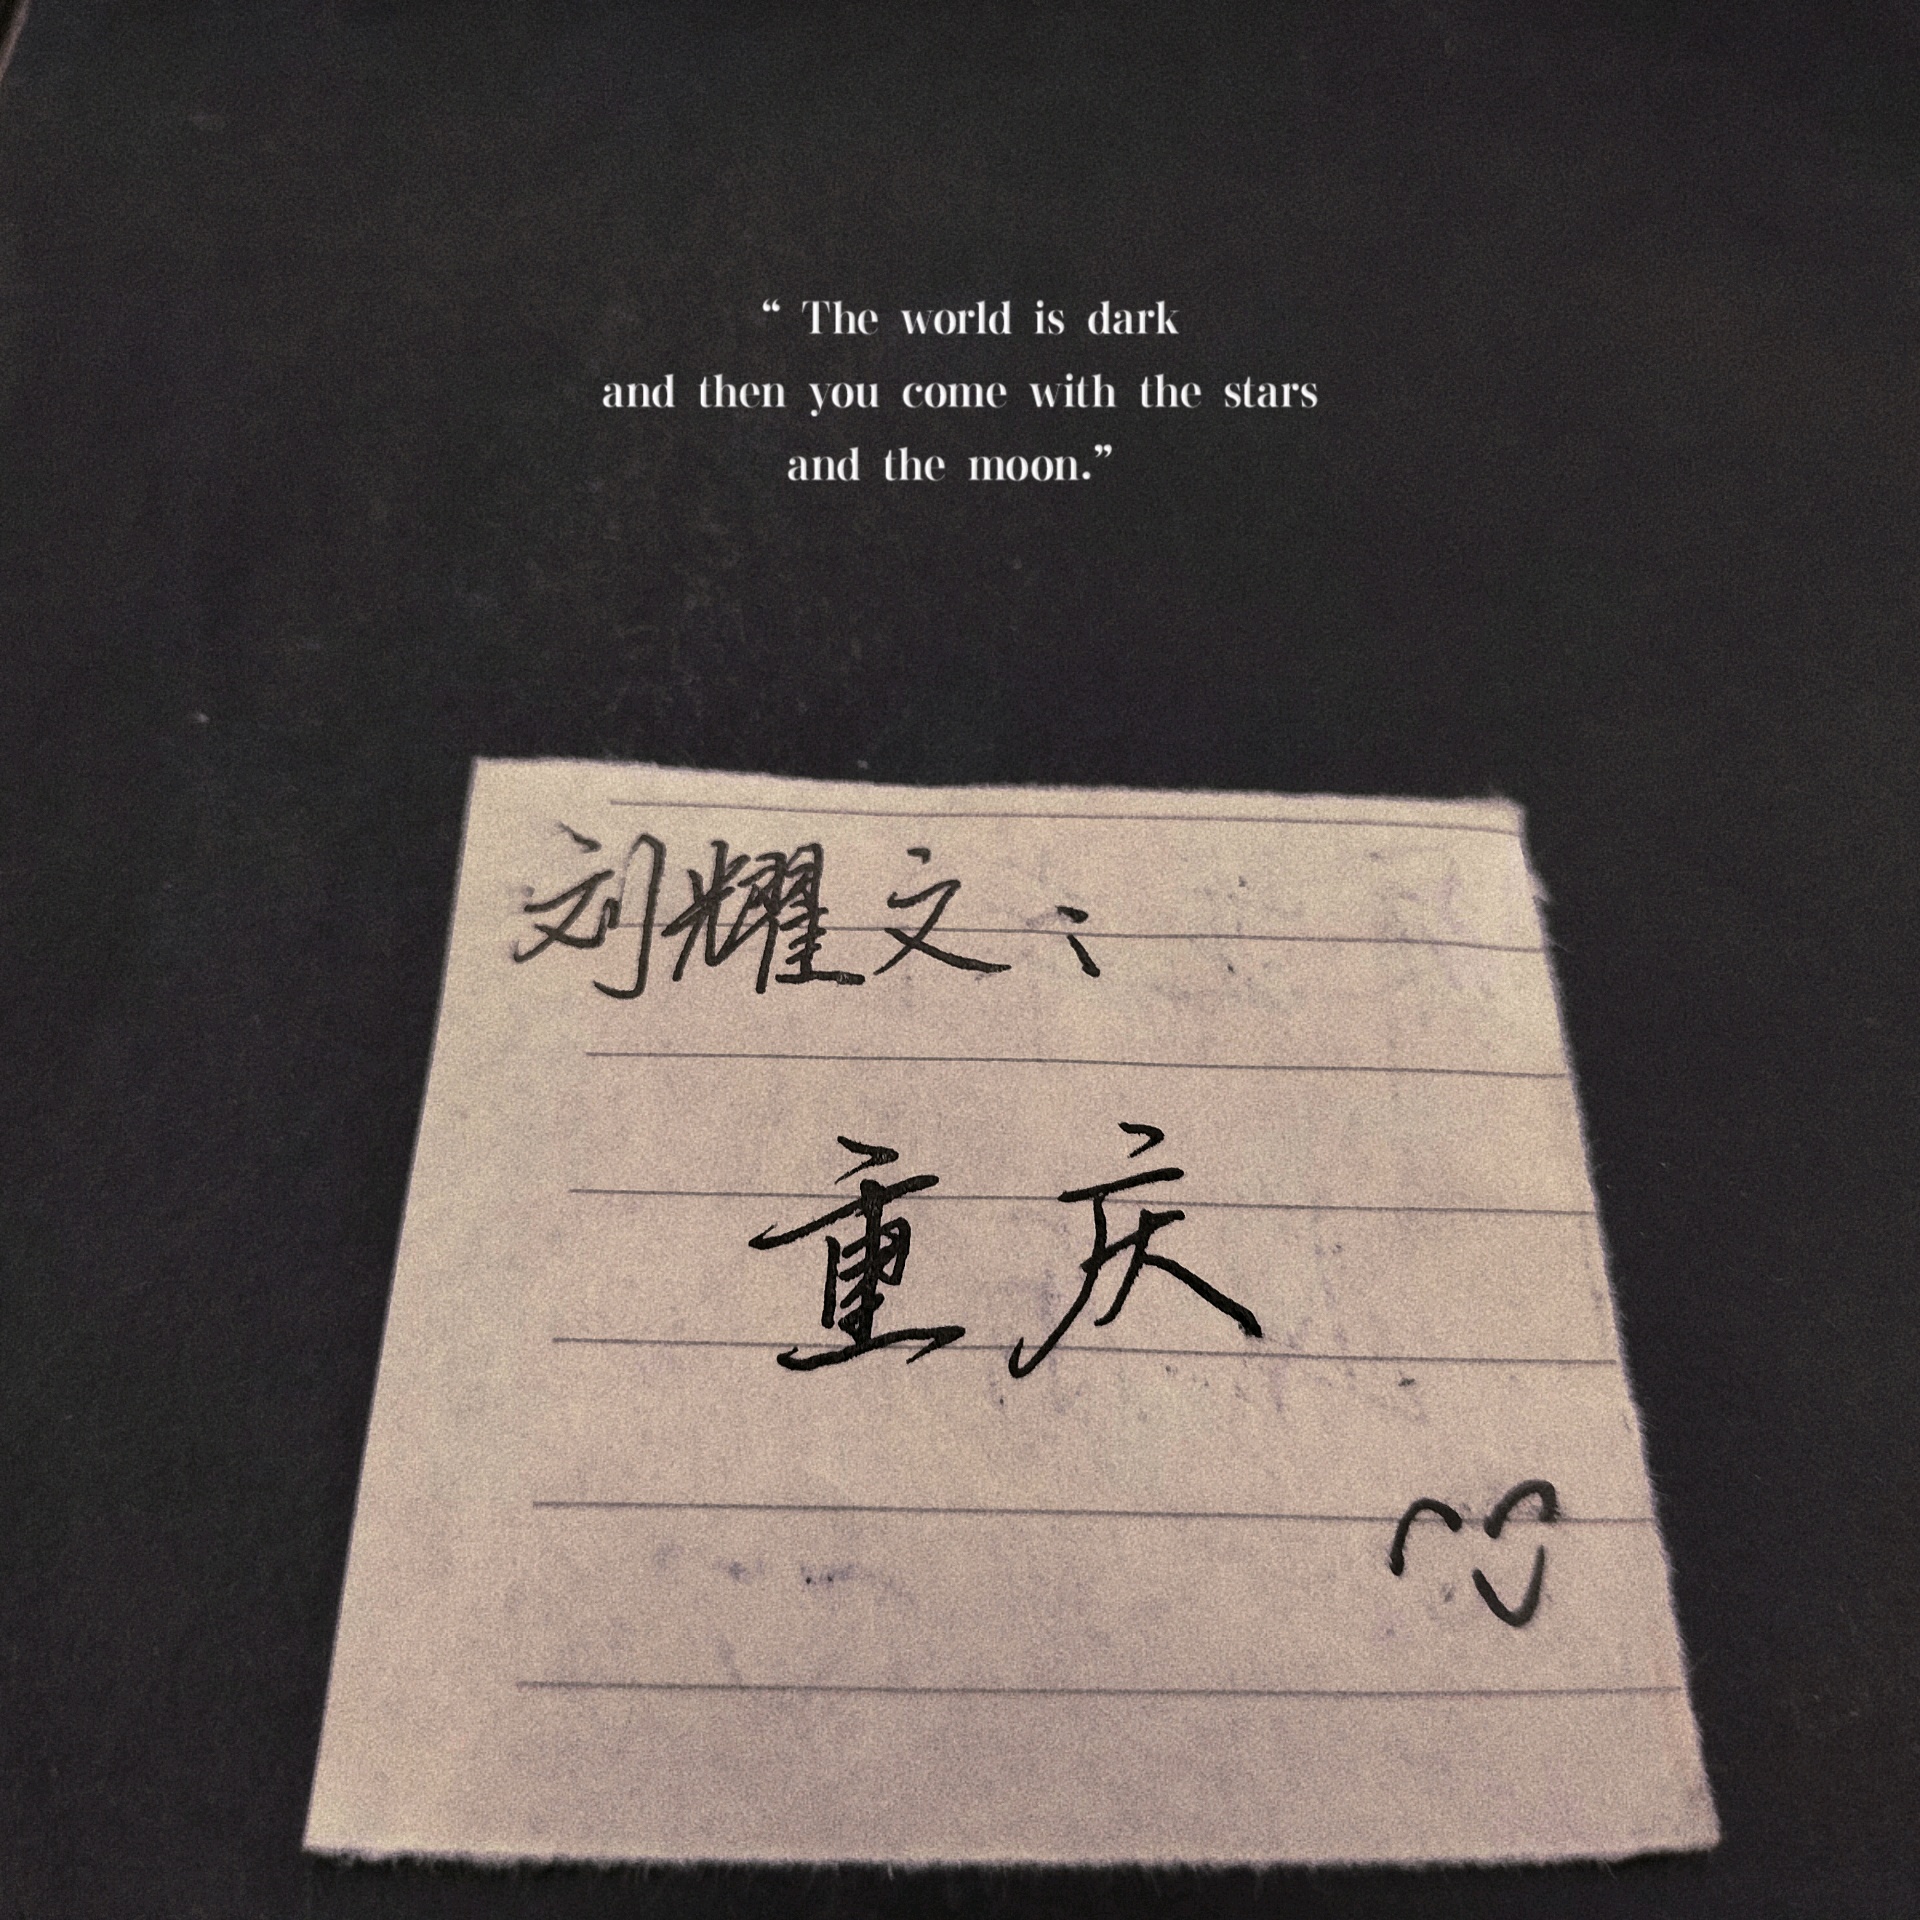 “ The world is dark
and then you come with the stars
and the moon.”
刘耀文：
重庆